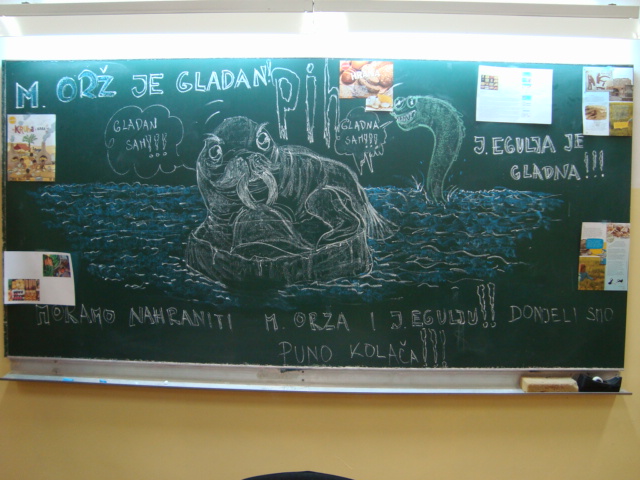 M. ORŽ JE GLADAN!
Pih
GLADAN
SAM!!!
GLADNA
SAM!!!
J. EGULJA JE
GLADNA!!!
MORAMO NAHRANITI M. ORŽA I J. EGULJU!! DONJELI SMO
PUNO KOLAČA!!!